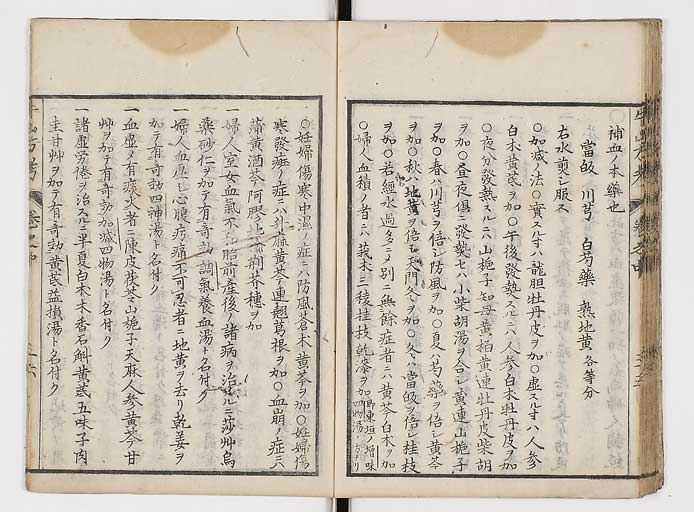 〇補血ノ本藥也
當皈 川芎 白芍藥 熟地黄 各等分
右水煎シ服ス
〇加減ノ法〇實スルニハ龍胆牡丹皮ヲ加〇虚スルニハ人参
白朮黄芪ヲ加〇午後發熱スルニハ人参白朮牡丹皮ヲ加
〇夜分發熱スルニハ山梔子知母黄柏黄連牡丹皮柴胡
ヲ加〇昼夜俱ニ發熱セハ小柴胡湯ヲ合シ黄連山梔子
ヲ加〇春ハ川芎ヲ倍シ防風ヲ加〇夏ハ芍藥ヲ倍シ黄芩
ヲ加〇秋ハ地黄ヲ倍シ天門冬ヲ加〇冬ハ當皈ヲ倍シ桂枝
ヲ加〇若經水過多ニメ別ニ無餘症者ニハ黄芩白朮ヲ加
〇婦人血積ノ者ニハ莪朮三稜桂枝乾漆ヲ加 即東垣ノ増味四物湯ノ方ナリ
〇妊婦傷寒中濕ノ症ニハ防風蒼朮黄芩ヲ加〇妊婦傷
寒發斑ノ症ニハ升麻黄芩連翹葛根ヲ加〇血崩ノ症ニハ
蒲黄酒芩阿膠地荊芥穂ヲ加
一婦人室女血氣不胎前産後ノ諸病ヲ治スルニ莎艸烏
藥砂仁ヲ加テ有奇功調氣養血湯ト名付ク
一婦人血虚シ心腹疠痛不可忍者ニ地黄ヲ去リ乾姜ヲ
加テ有奇効四神湯ト名付ク
一血虚メ有痰火者ニ陳皮茯苓山梔子天麻人参黄芩甘
艸ヲ加テ有奇効加減四物湯ト名付ク
一諸虚労倦ヲ治スルニ半夏白朮木香石斛黄芪五味子肉
圭甘艸ヲ加テ有奇効黄芪益損湯ト名付ク